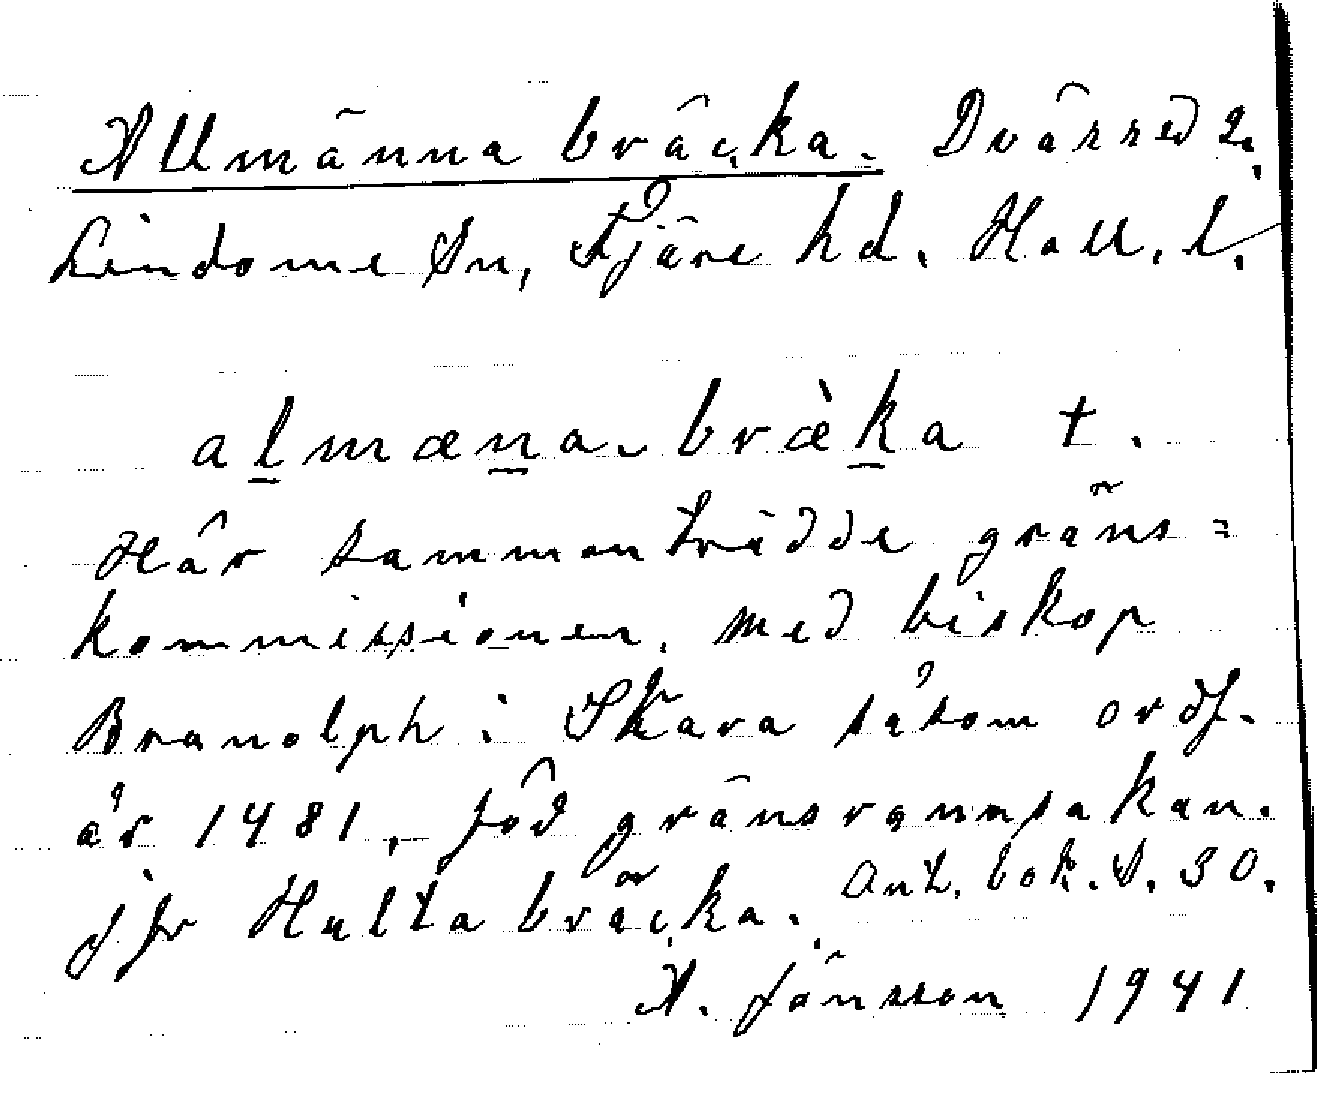 Allmänna bräcka. Dvärred 2.
Lindome Sn, Fjäre hd. Hall. l.
almæna-bræ̀ka †.
Här sammanträdde gräns=
kommissionen, med biskop
Branolph i Skara såsom ordf.
år 1481, föd gränsrannsakan.
Jfr Hultabräcka. Ant. bok. S. 30.
A. Jönsson 1941